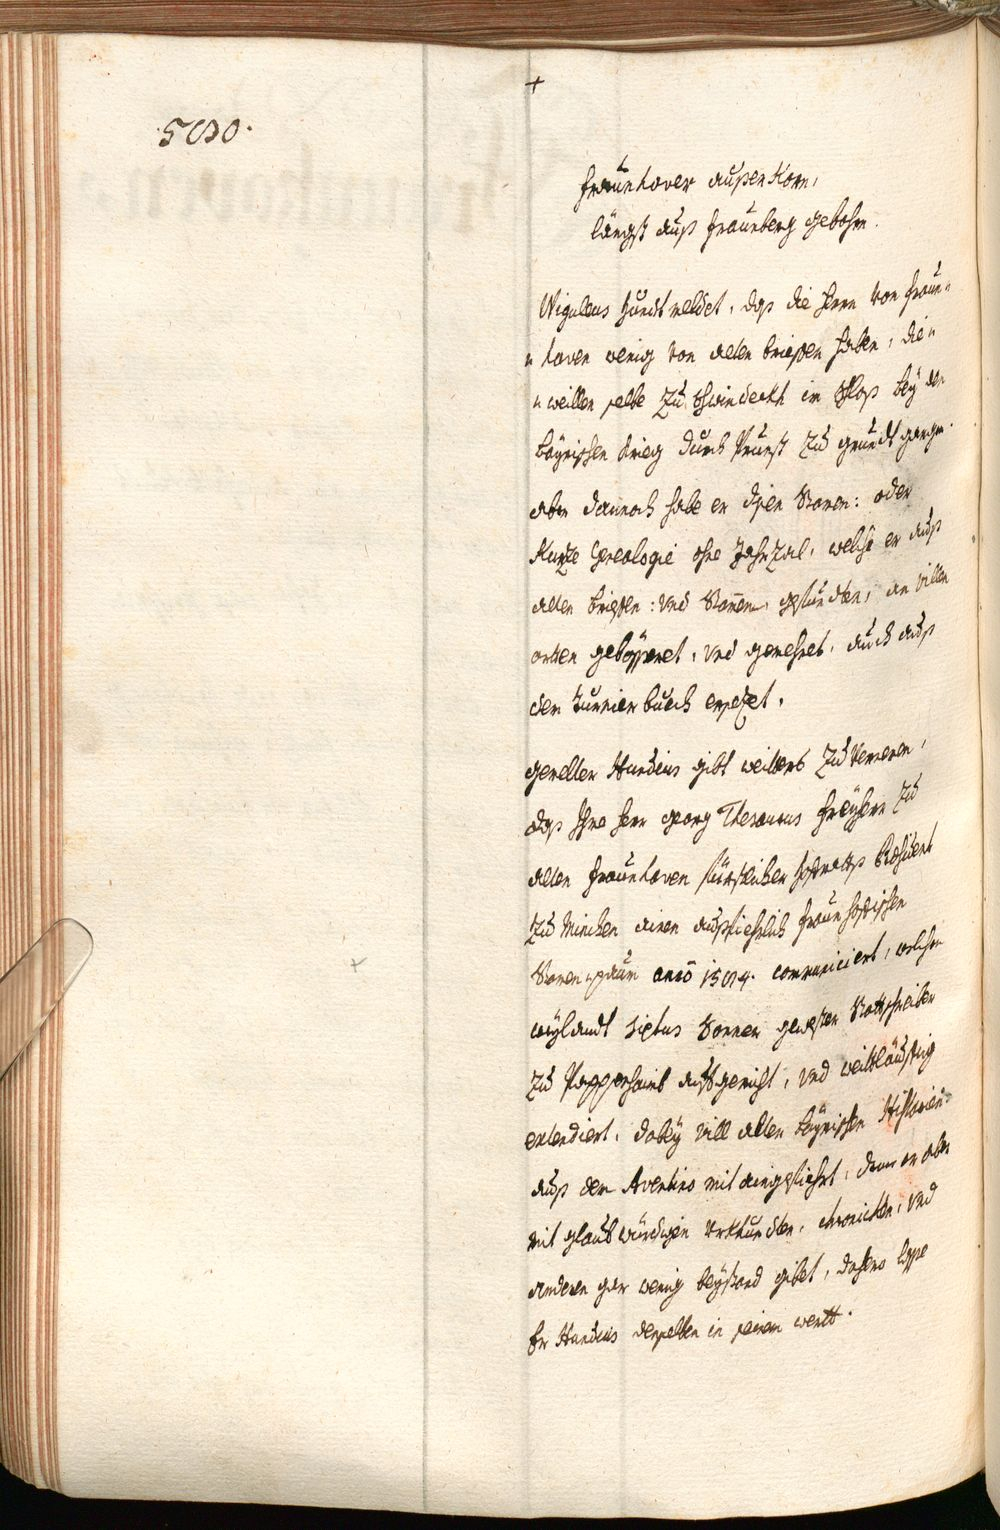 +
.500.
fraunhover außer Korn,
längst auß fraunberg gebohrn.
Wiguleus Hundt meldet, daß die Herrn von fraun„
„hoven wenig von alten brieffen haben, die„
„weillen selbe zu schwindeckh im Schloß bey dem
bäyrischen krieg durch Prunst zu grundt gangen.
aber dannoch habe er disen Stamen: oder
Kurze Genealogie ohne Jahrzal, welche er auß
alten brieffen: und Stamen, gefundten, an villen
orthen gebösseret, und gemehret, auch auß
dem Turnier buech ersezet.
gemelter Hundius gibt weitters zu vernemen,
daß Ihme Herr georg Thesaurus freyherr zu
alten fraunhoven fürstlicher hoffraths Præsident
zu Minchen ainen außfiehrlich fraunhofischen
Stamen„paum anno 15 4. communiciert, welchen
weylandt Sixtus gewester Stattschreiber
zu Pappenhaimb aufgericht, und weitläuffig
extendiert, dabey vill alten bäyrischen Historien
auß dem Aventino mit aingefiehrt, deme er aber
mit glaubwürdigen Urkhundten, chronickhen, und
anderen gar wenig beystand gibet, dahero lasse
Er Hundius denselben in seinem werth.